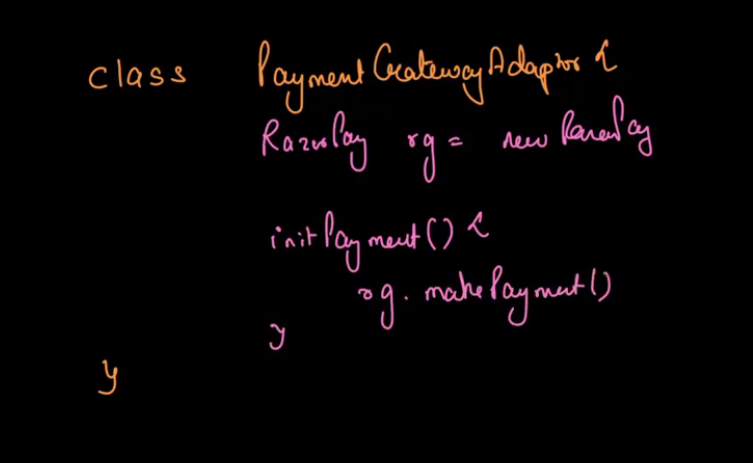 class PaymentGatewayAdaptor {
RazorPay rg = new RazorPay
initPayment() {
rg. makePayment()
}
}